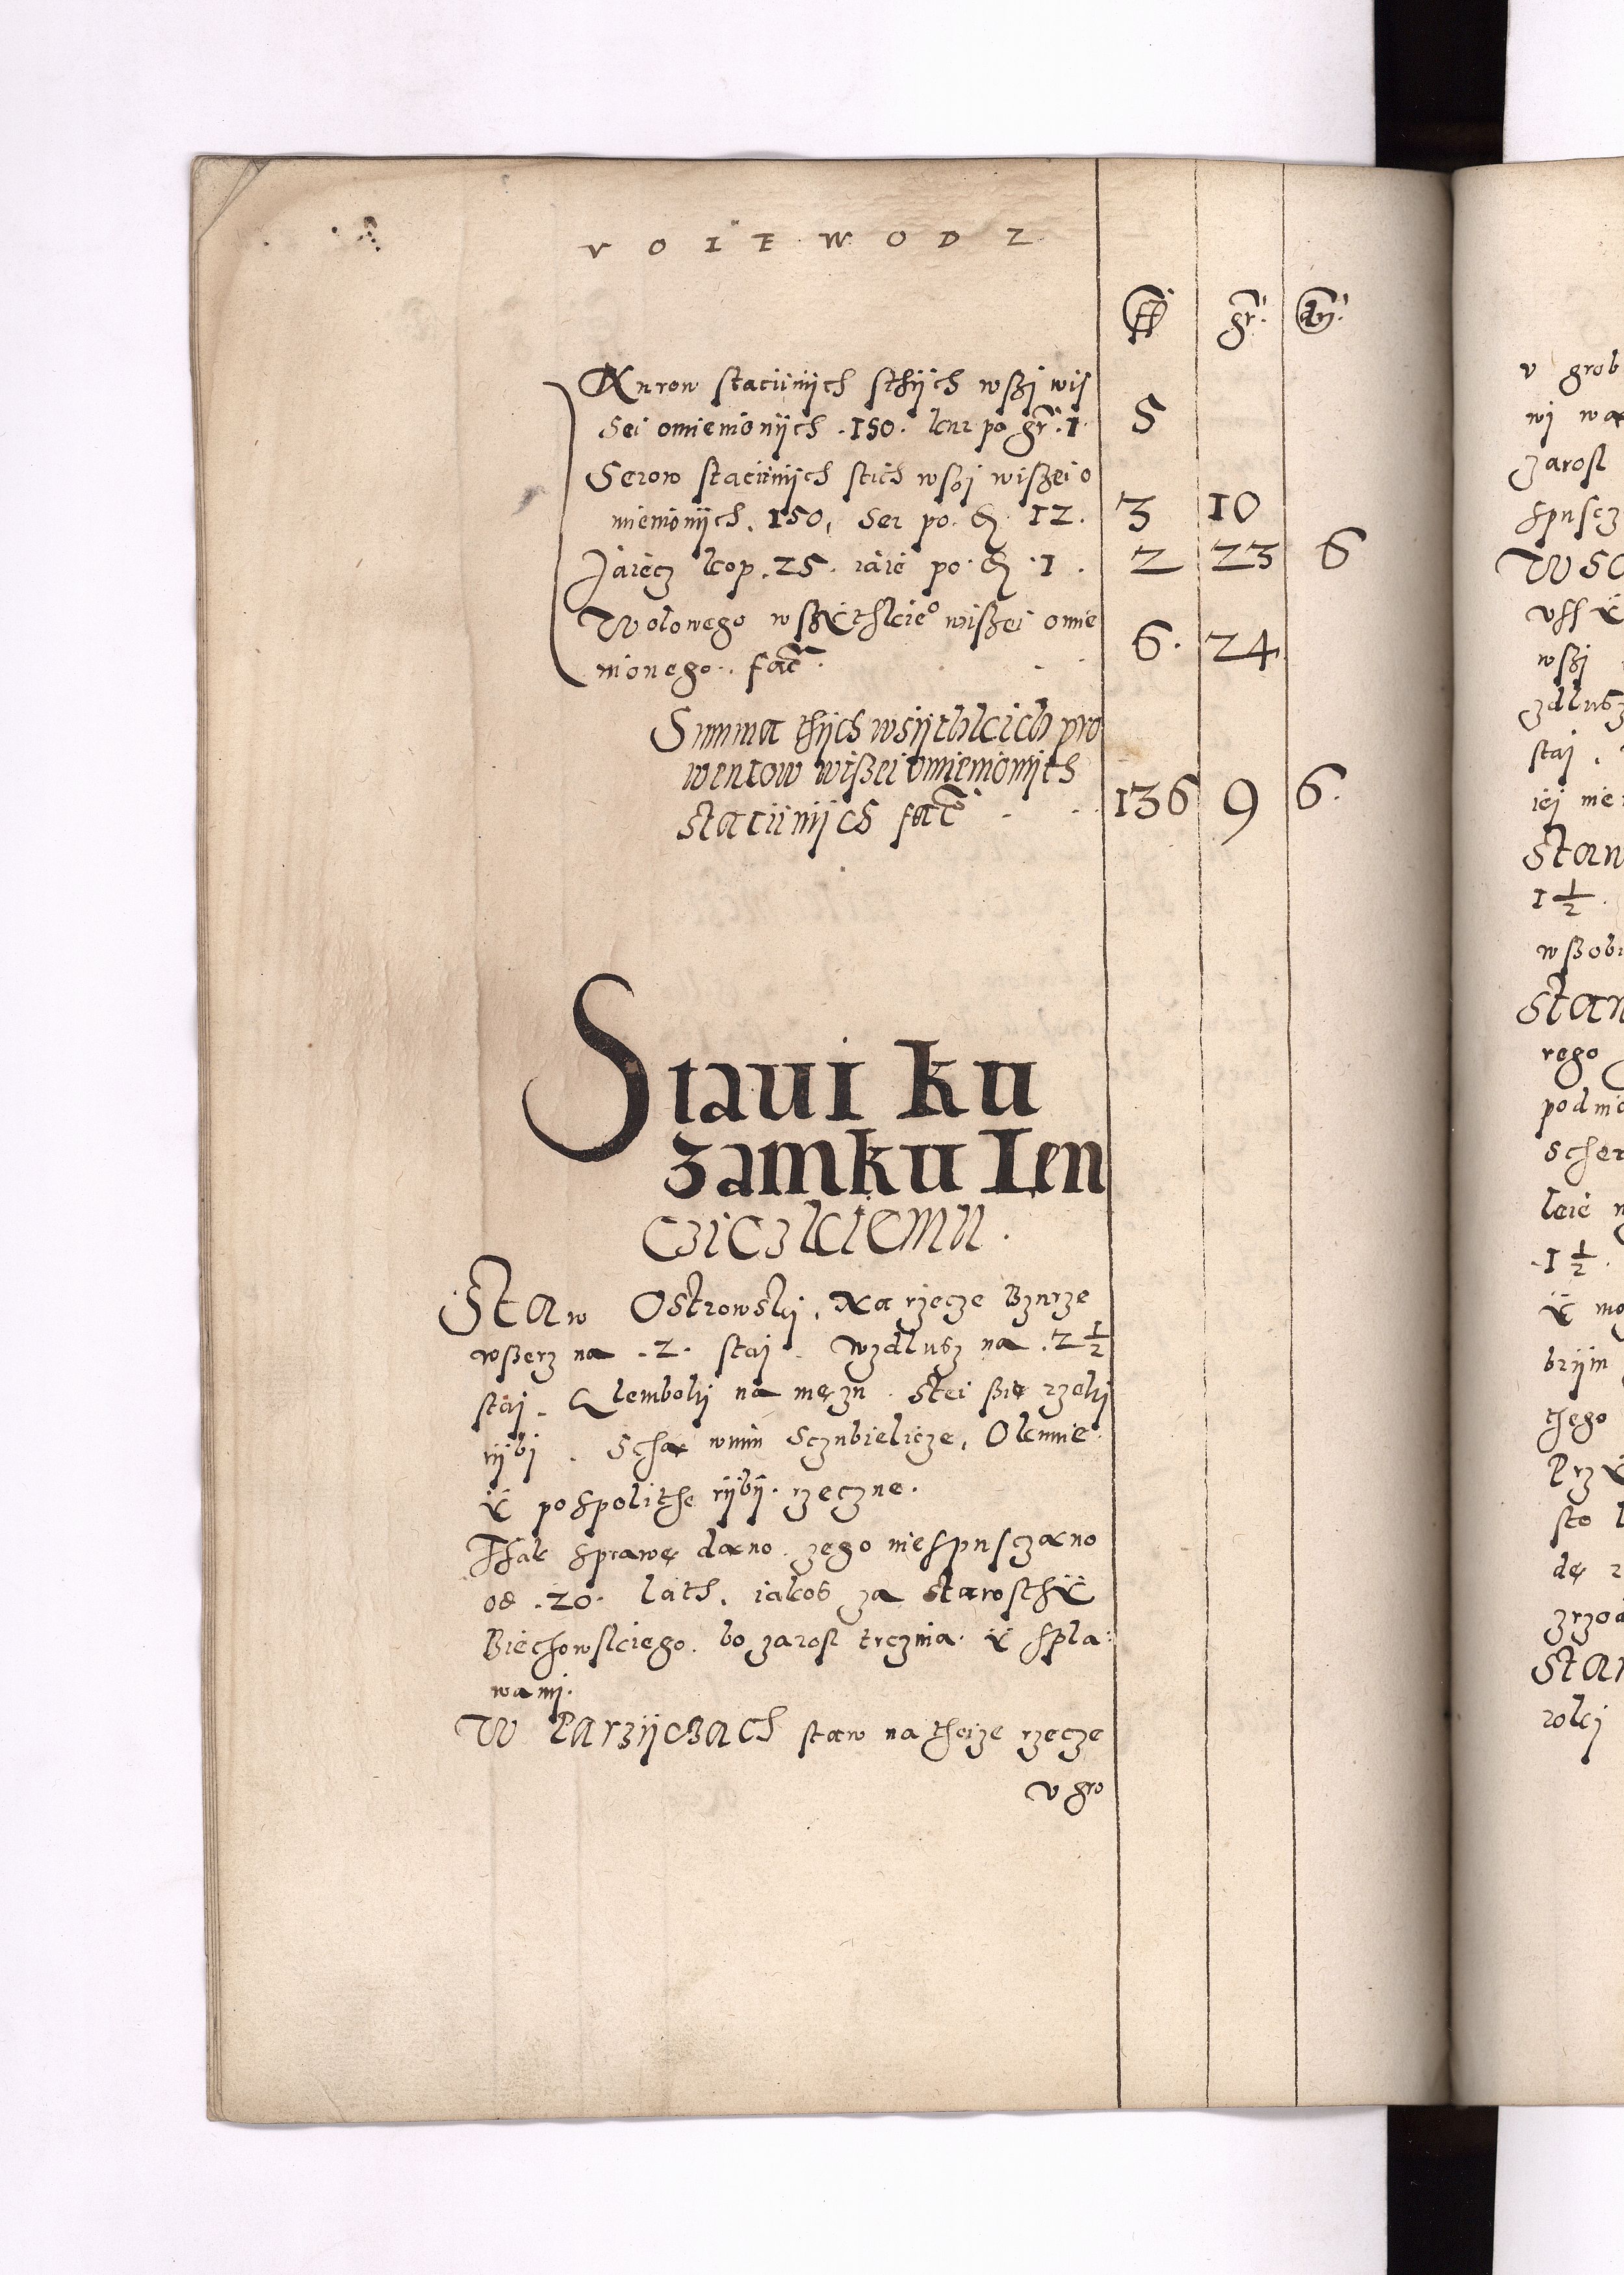 VOIEWODZ
ff gr. dn.
Kurow staciinijch sthijch wszj wis
sei omienioniich .150. kur po gr. 1. 5
Serow staciinijch stich wszj wiszei o
mienionijch. 150, Ser po. d. 12. 3 10
Jaiecz kop. 25. iaie po. d. 1. 2 23 6
Wolowego wszÿthkieo wiszei omie
nionego. facit. 6. 24
Summa thijch wsijthkich pro
wentow wiszei omienionijch
staciinijch facit 136 9 6.
Staui ku
zamku Len
cziczkiemu.
Staw Ostrowski, Na rzecze Bzurze
wszerz na .2. staj. Wzdlusz na .2 1/2
staj. Glemboki na męzu. Stei szie rzeki
rijbi. Scha wnim Sczubielicze, Okunie
ÿ pospolithe rijbij. rzeczne.
Thak sprawę dano. zego niespusczano
od .20. lath. iakos za starosthÿ
Biechowskiego. bo zarosl trczina. ÿ spla
wami.
W Parzijczach staw na theize rzecze
v gro
v grob
wj wa
zarosl
spuscz
wszj
zdlusz
staj.
iej nie
Staw
1 1/2.
wszobi
Staw
rego
podnie
.1 1/2.
brijm
thego
Przÿ
sto
dę
zrzod
Staw